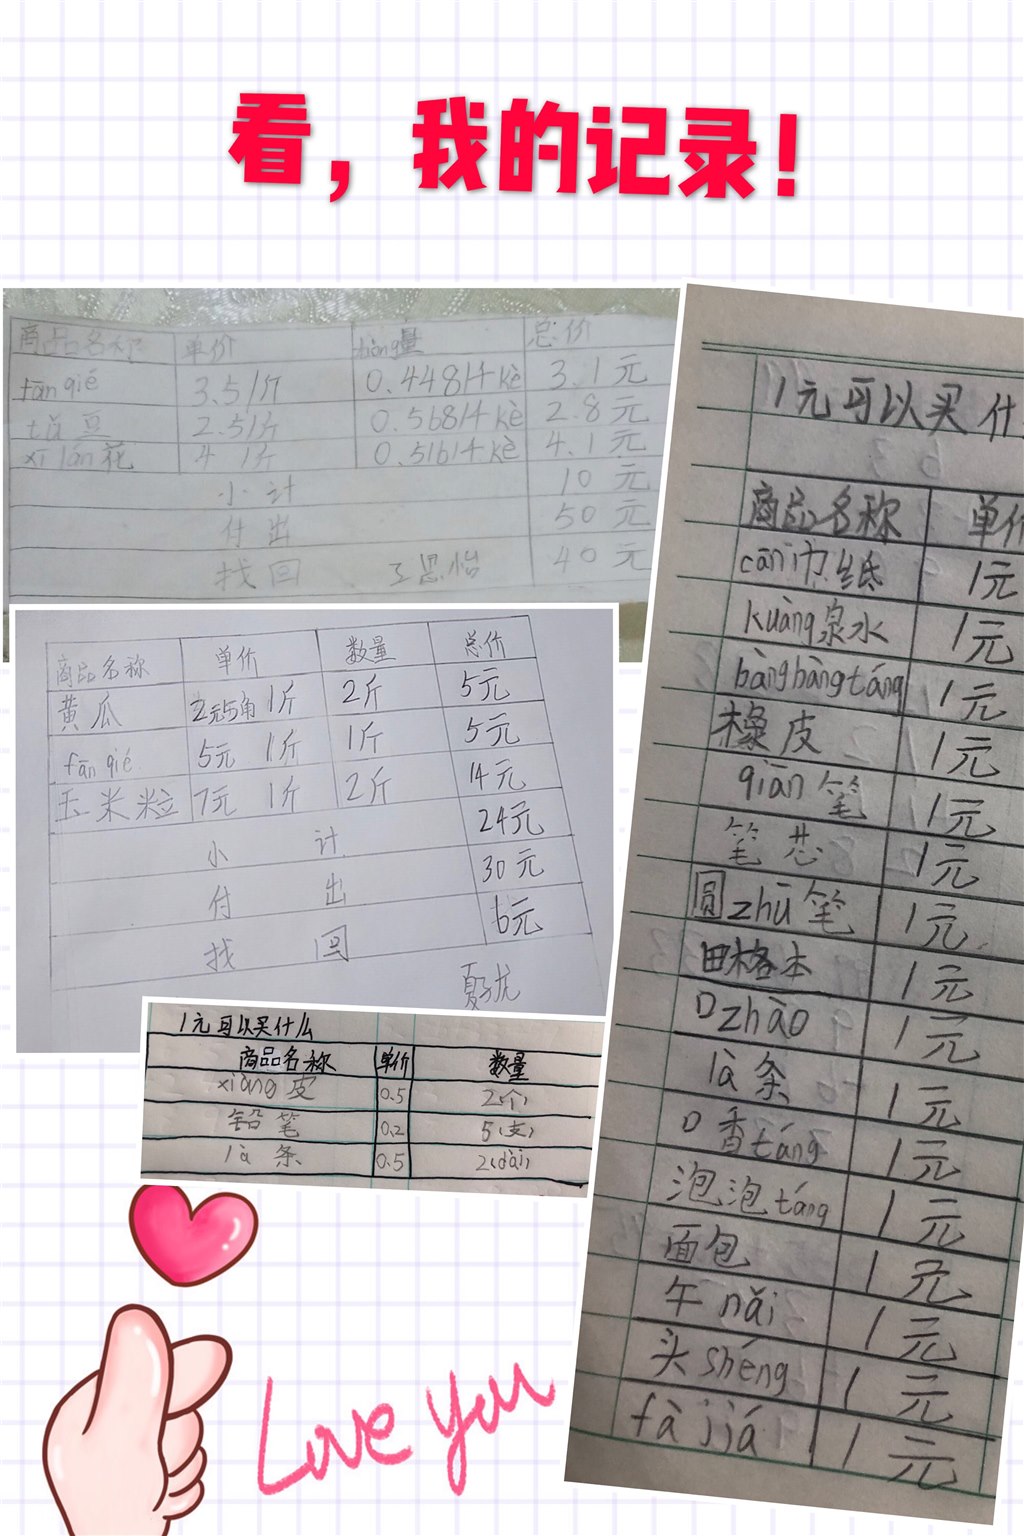 看，我的记录！
商品名称 单价 liàng量 总价
fānqié 3.5/斤 0.448千kè 3.1元
tǔ豆 2.5/斤 0.568千kè 2.8元
xīlán花 4 /斤 0.516千kè 4.1元
小计 10元
付出 50元
找回 王思怡 40元
商品名称 单价 数量 总价
黄瓜 2元5角 1斤 2斤 5元
fānqié 5元 1斤 1斤 5元
玉米粒 7元 1斤 2斤 14元
小计 24元
付出 30元
找回 6元
1元可以买什么
商品名称 单价 数量
xiàng皮 0.5 2(个)
铅笔 0.2 5(支)
là条 0.5 2(dài)
1元可以买什
商品名称 单价
cān巾纸 1元
kuàng泉水 1元
bàngbàngtáng 1元
橡皮 1元
qiān笔 1元
笔芯 1元
圆zhū笔 1元
田格本 1元
口zhào 1元
là条 1元
口香táng 1元
泡泡táng 1元
面包 1元
牛nǎi 1元
头shéng 1元
fàjiá 1元
Love you